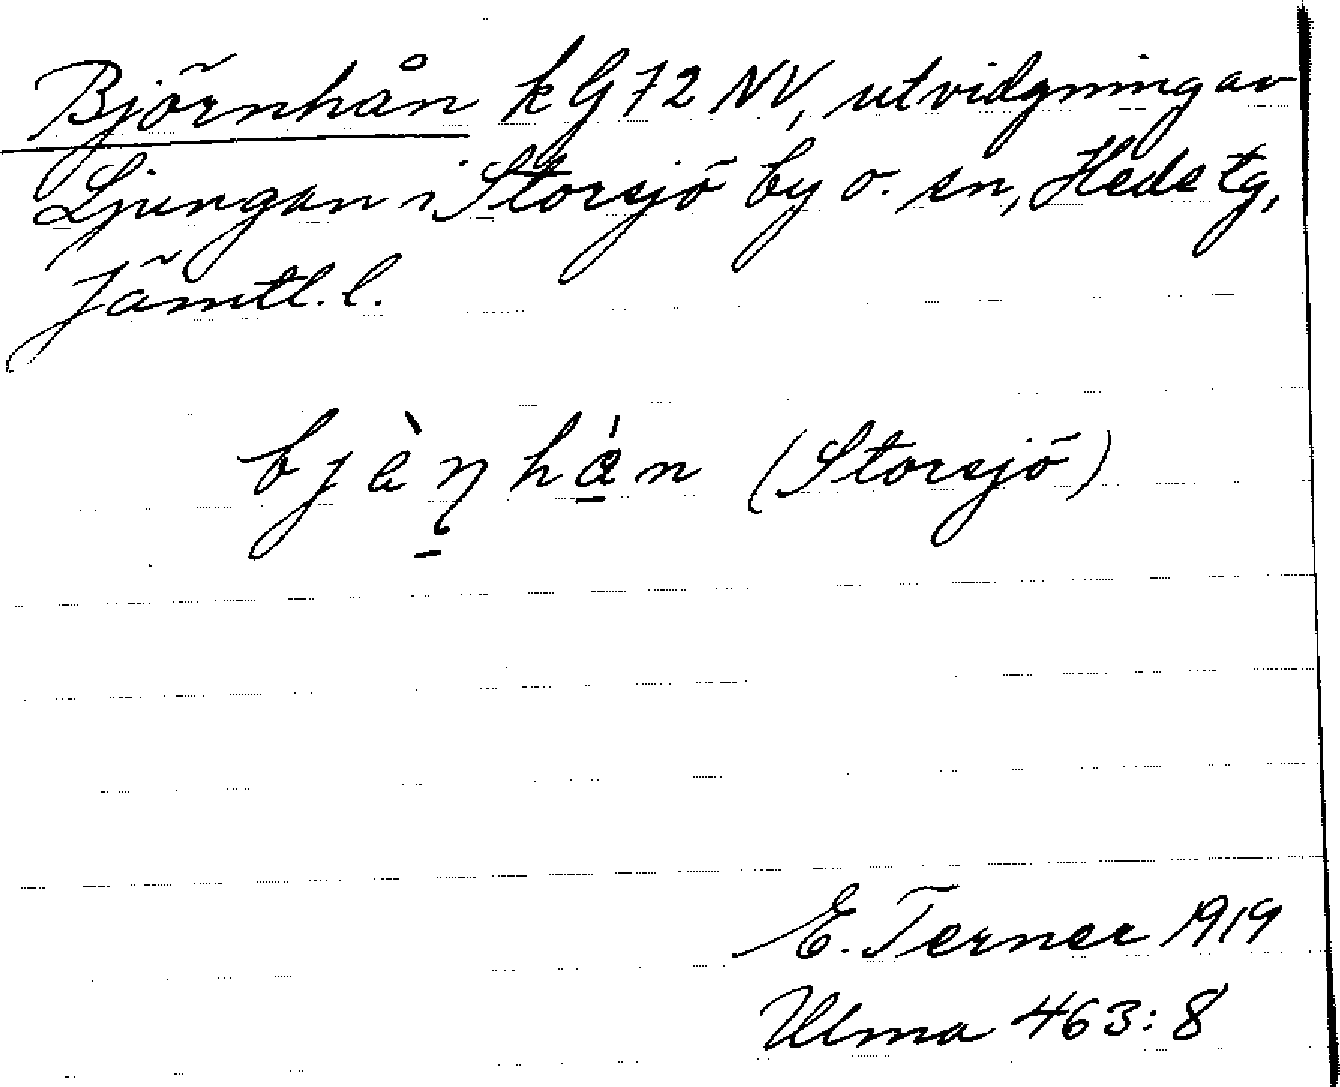 Björnhån kG72NV, utvidgning av
Ljungan i Storsjö by o. sn, Heds tg,
Jämtl. l.
(Storsjö)
E. Terner 1919
Ulma 463:8